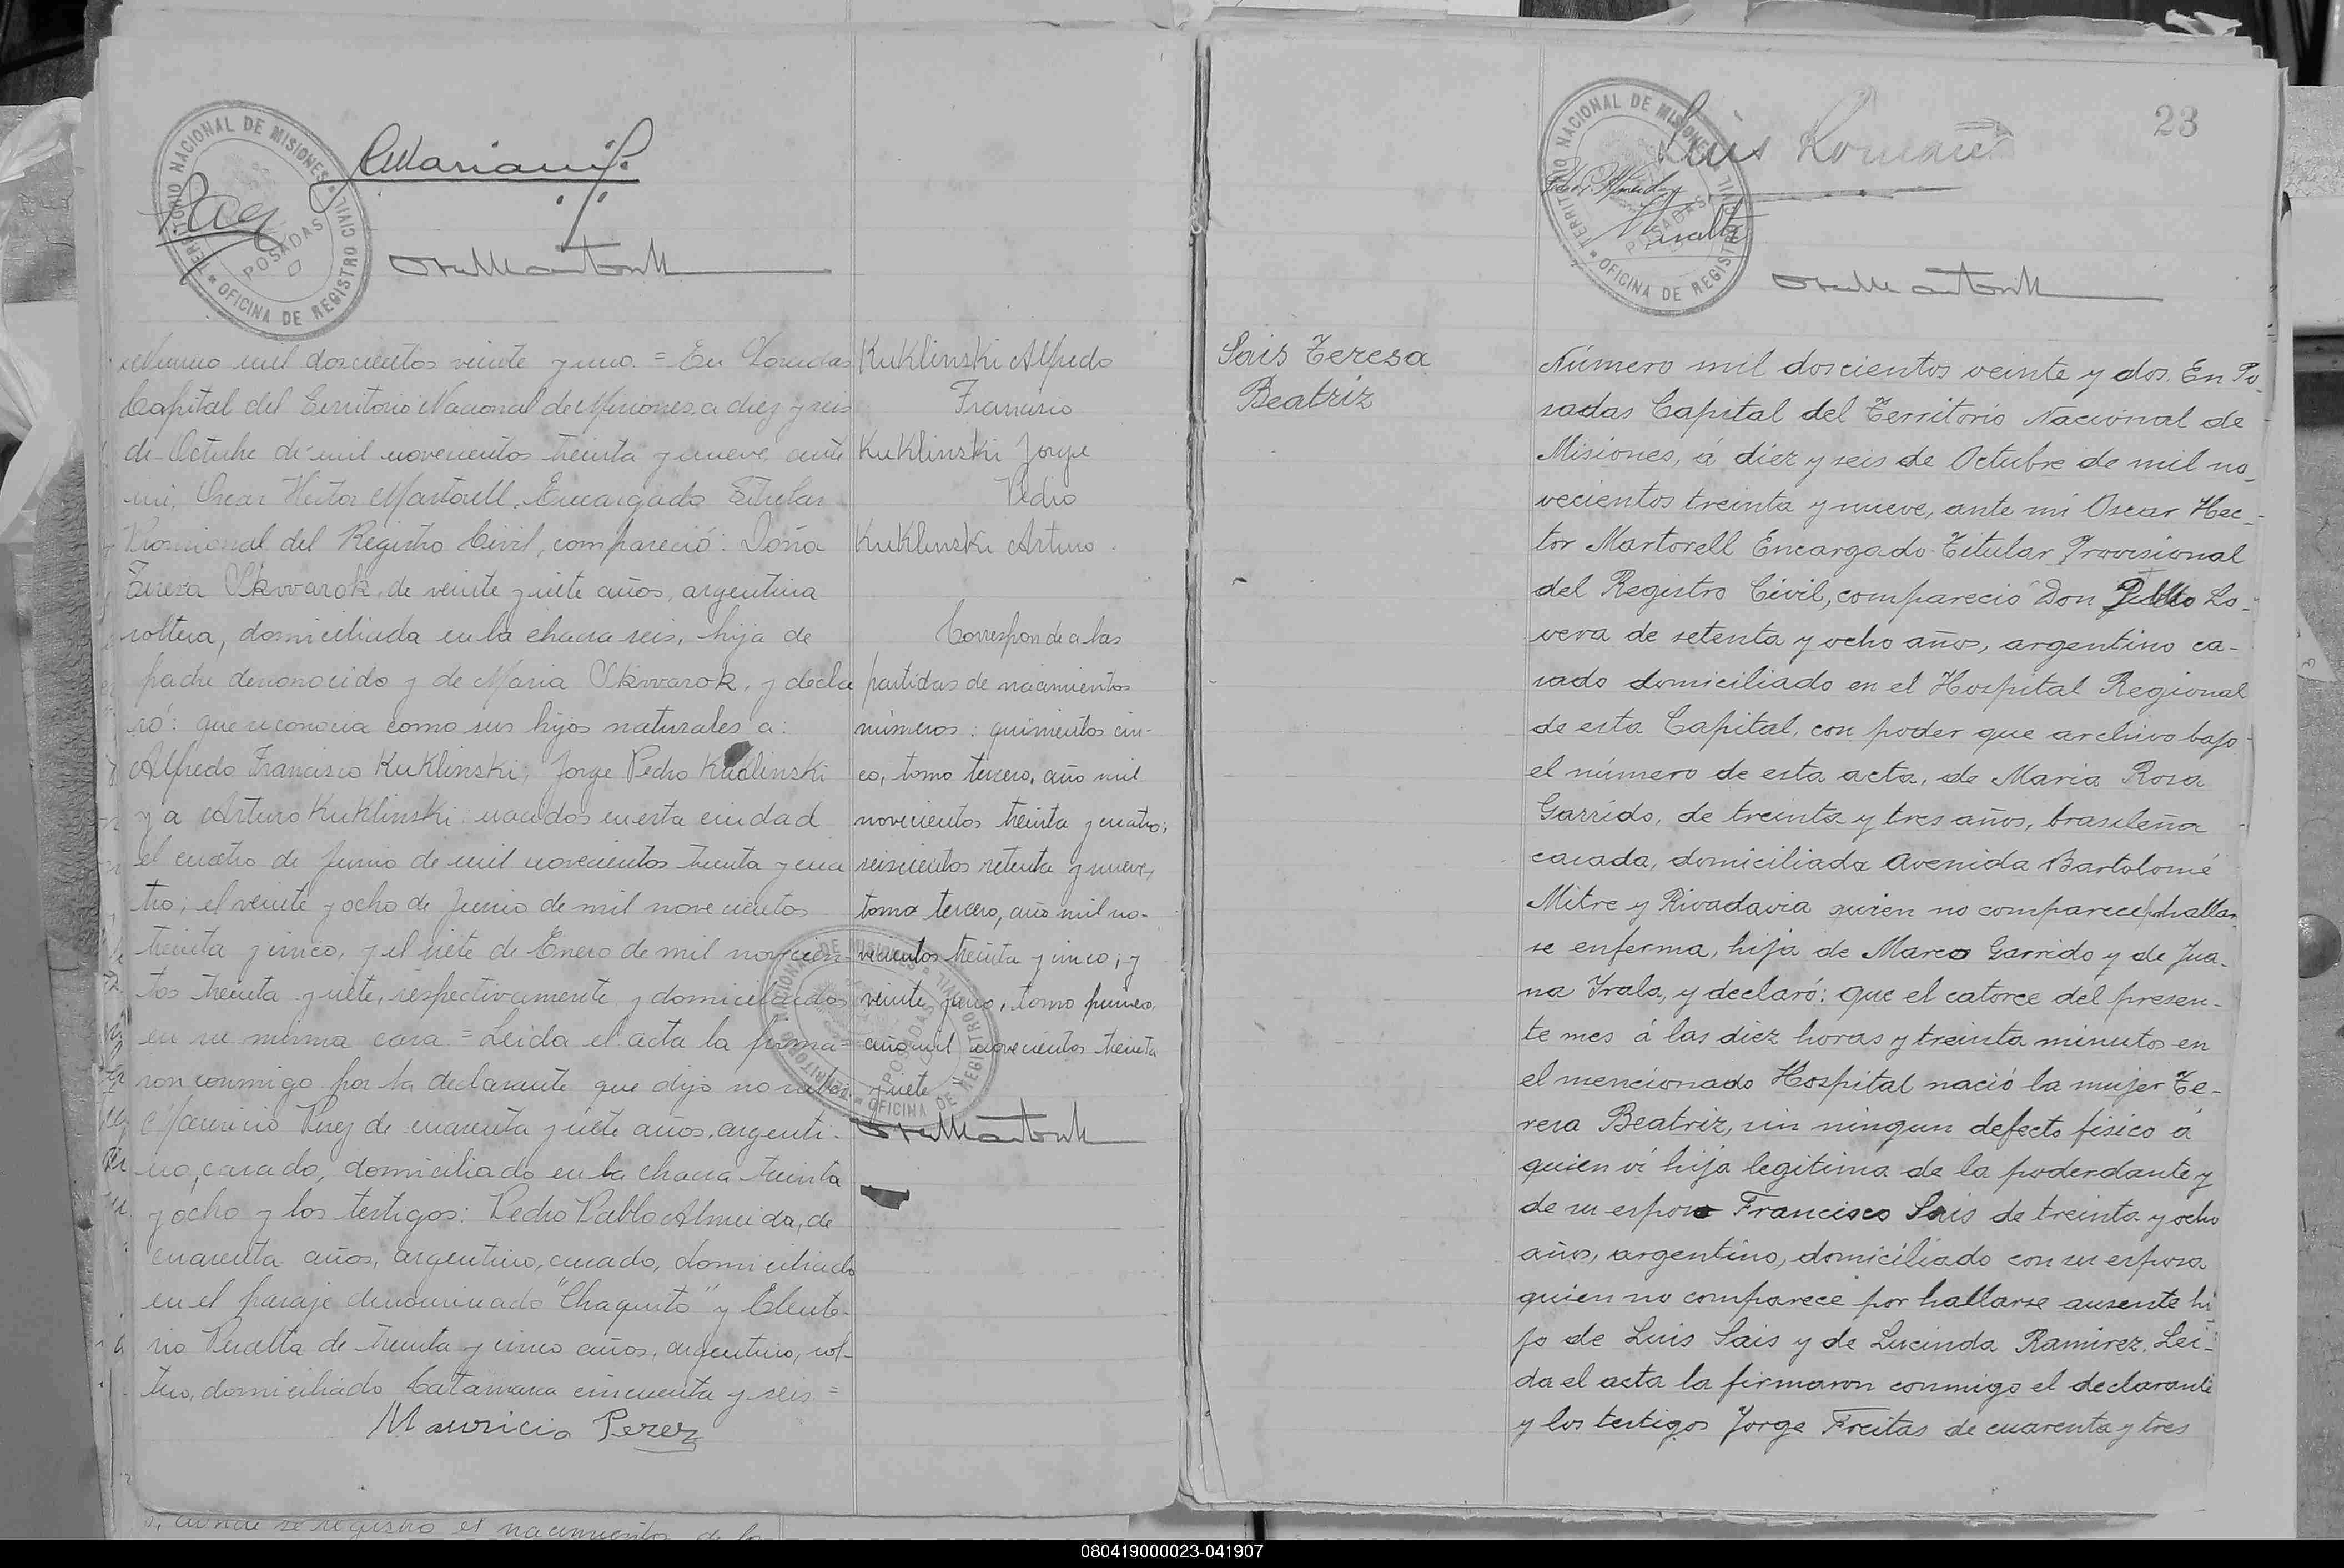 TERRITORIO NACIONAL DE MISIONES
OFICINA DE REGISTRO CIVIL
POSADAS
Número mil doscientos veinte y uno. = En Posadas
Capital del Territorio Nacional de Misiones, a diez y seis
de Octubre de mil novecientos treinta y nueve ante
mi, Oscar Hector Martorell, Encargado Titular
Provisional del Registro Civil, compareció: Doña
Teresa Skwarok, de veinte y siete años, argentina
soltera, domiciliada en la chacra seis, hija de
padre desconocido y de Maria Skwarok, y decla
ró: que reconocia como sus hijos naturales a:
Alfredo Francisco Kuklinski; Jorge Pedro Kuklinski
y a Arturo Kuklinski nacidos en esta ciudad
el cuatro de Junio de mil novecientos treinta y cua
tro; el veinte y ocho de Junio de mil novecientos
treinta y cinco, y el siete de Enero de mil novecien
tos treinta y siete, respectivamente y domiciliados
en su misma casa. = Leida el acta la firma
ron conmigo por la declarante que dijo no saber
Mauricio Perez de cuarenta y siete años, argenti-
no, casado, domiciliado en la chacra treinta
y ocho y los testigos: Pedro Pablo Almeida, de
cuarenta años, argentino, casado, domiciliado
en el paraje denominado "Chaquito" y Eleute-
rio Peralta de treinta y cinco años, argentino, sol-
tero, domiciliado Catamarca cincuenta y seis =
Mauricio Perez
Kuklinski Alfredo
Francisco
Kuklinski Jorge
Pedro
Kuklinski Arturo.
Corresponde a las
partidas de nacimientos
números: quinientos cin-
co, tomo tercero, año mil
novecientos treinta y cuatro;
seiscientos setenta y nueve,
tomo tercero, año mil no-
vecientos treinta y cinco; y
veinte y uno, tomo primero,
año mil novecientos treinta
y siete
TERRITORIO NACIONAL DE MISIONES
OFICINA DE REGISTRO CIVIL
POSADAS
23
TERRITORIO NACIONAL DE MISIONES
OFICINA DE REGISTRO CIVIL
POSADAS
Luis
Peralta
Sais Teresa
Beatriz
Número mil doscientos veinte y dos. En Po_
sadas Capital del Territorio Nacional de
Misiones, á diez y seis de Octubre de mil no_
vecientos treinta y nueve, ante mi Oscar Hec_
tor Martorell Encargado Titular Provisional
del Registro Civil, compareció Don Lo_
vera de setenta y ocho años, argentino ca-
sado domiciliado en el Hospital Regional
de esta Capital, con poder que archivo bajo
el número de esta acta, de Maria Rosa
Garrido, de treinta y tres años, brasileña
casada, domiciliada Avenida Bartolomé
Mitre y Rivadavia quien no comparece por hallar
se enferma, hija de Marco Garrido y de Jua-
na Irala, y declaró: que el catorce del presen-
te mes á las diez horas y treinta minutos en
el mencionado Hospital nació la mujer Te-
resa Beatriz, sin ningun defecto fisico á
quien vi hija legitima de la poderdante y
de su esposo Francisco Sais de treinta y ocho
años, argentino, domiciliado con su esposa
quien no comparece por hallarse ausente hi
jo de Luis Sais y de Lucinda Ramirez. Lei-
da el acta la firmaron conmigo el declarante
y los testigos Jorge Freitas de cuarenta y tres
080419000023-041907